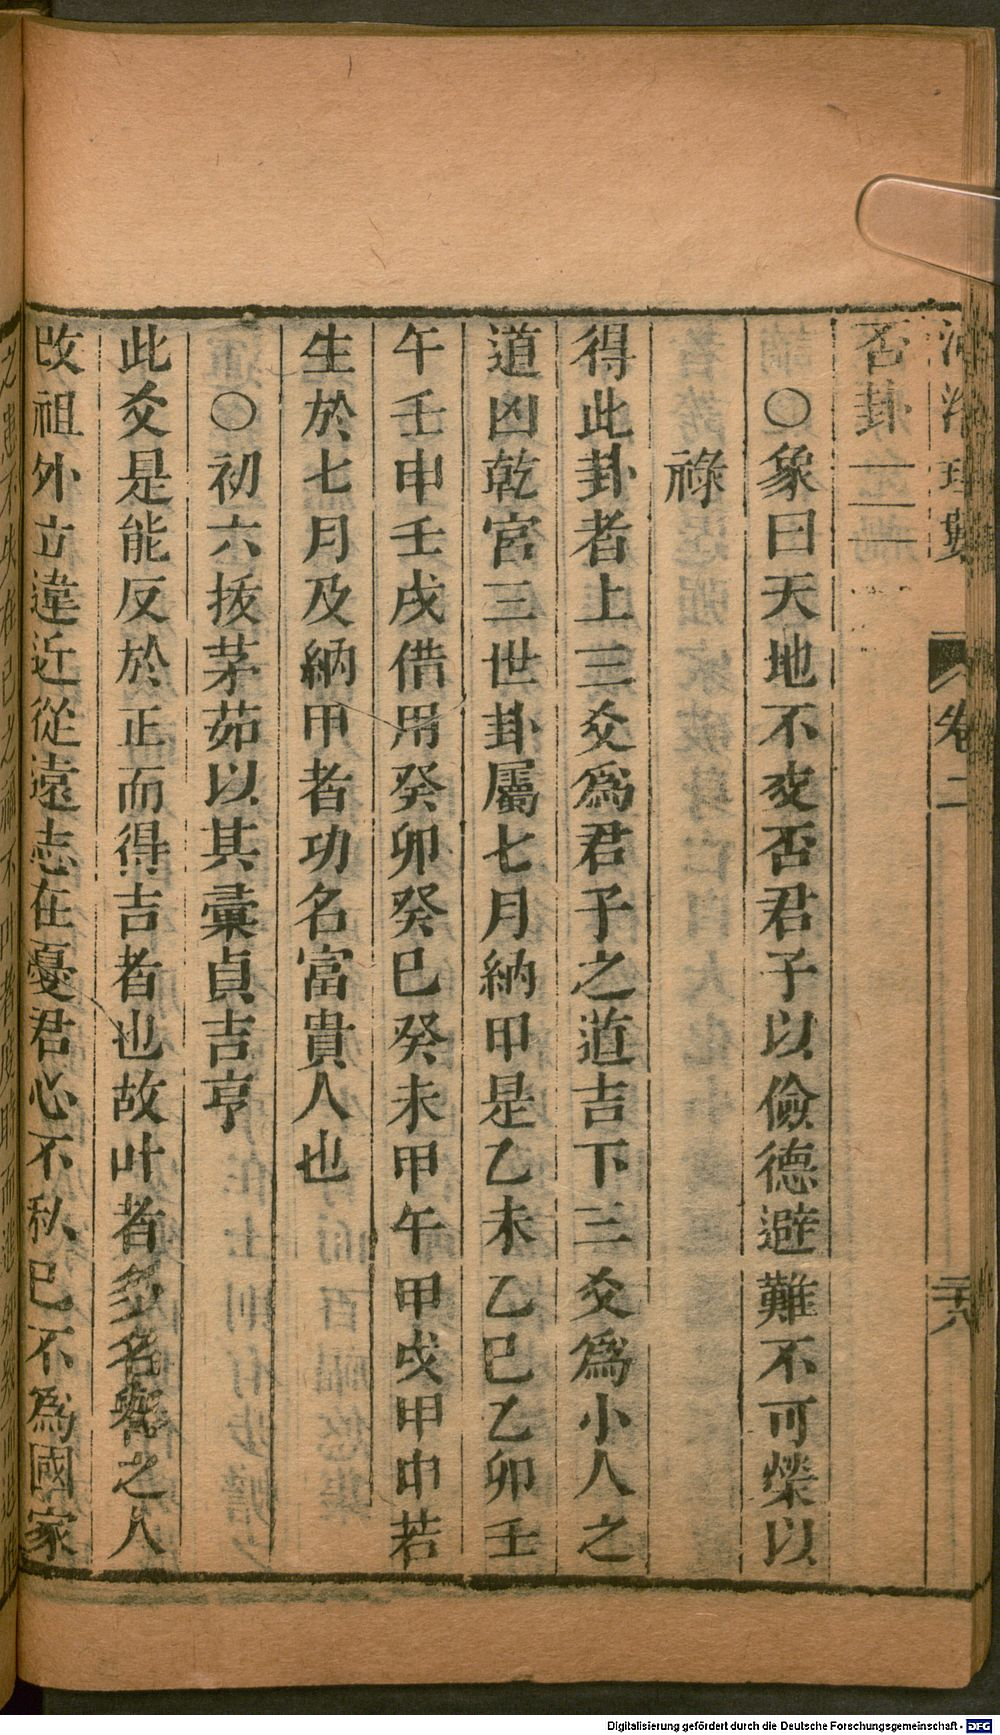 河洛理數 卷二 二十八
否卦
○象曰天地不交否君子以儉德避難不可榮以
祿
得此卦者上三爻爲君子之道吉下三爻爲小人之
道凶乾宮三世卦屬七月納甲是乙未乙巳乙卯壬
午壬申壬戌借用癸卯癸巳癸未甲午甲戌甲申若
生於七月及納甲者功名富貴人也
○初六拔茅茹以其彙貞吉亨
此爻是能反於正而得吉者也故叶者多名譽之人
改祖外立違近從遠志在憂君心不私已不爲國家
Digitalisierung gefördert durch die Deutsche Forschungsgemeinschaft - DFG